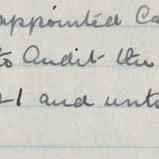 appointed Co
to Audit the
21 and unto